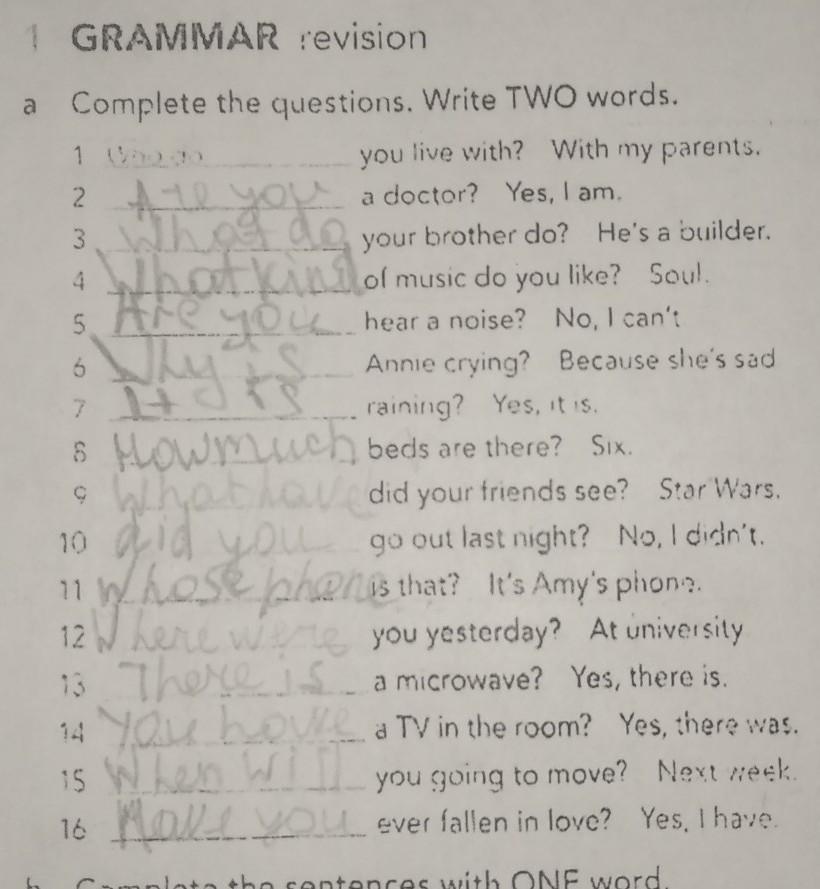 1 GRAMMAR revision
a Complete the questions. Write TWO words.
1 Who do you live with? With my parents.
2 Are you a doctor? Yes, I am.
3 What do your brother do? He's a builder.
4 What kind of music do you like? Soul.
5 Are you hear a noise? No, I can't
6 Why is Annie crying? Because she's sad
7 It is raining? Yes, it is.
8 How much beds are there? Six.
9 What have did your friends see? Star Wars.
10 did you go out last night? No, I didn't.
11 Whose phone is that? It's Amy's phone.
12 Where were you yesterday? At university
13 There is a microwave? Yes, there is.
14 You have a TV in the room? Yes, there was.
15 When will you going to move? Next week.
16 Have you ever fallen in love? Yes, I have.
b Complete the sentences with ONE word.